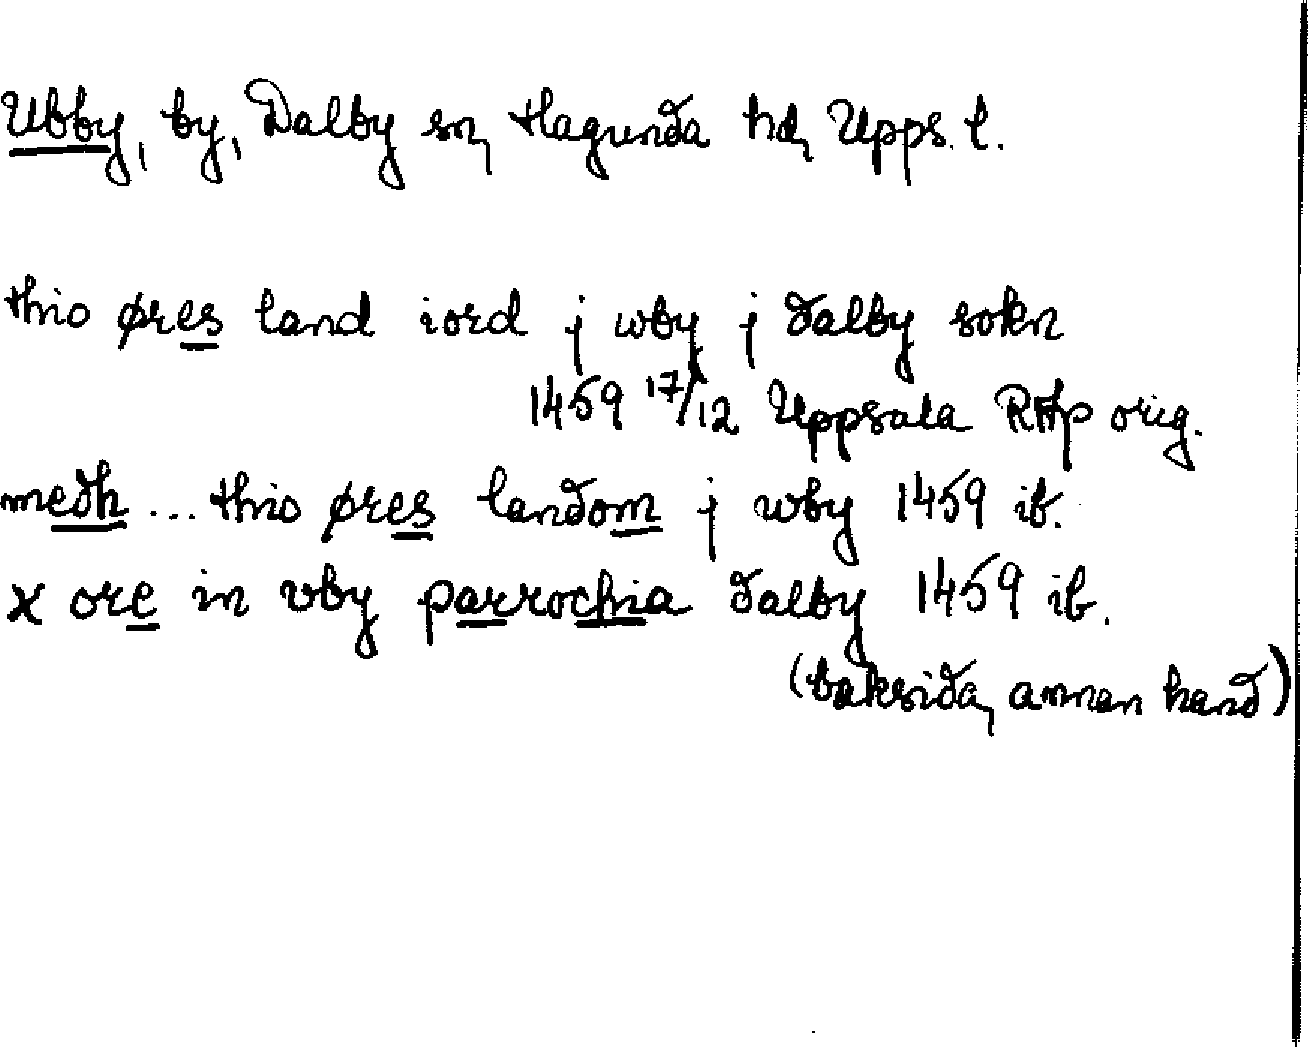 Ubby, by, Dalby sn, Hagunda hd, Upps. l.
thio øres land iord j wby j dalby sokn
1459 17/12 Uppsala RAp orig.
medh ... thio øres landom j wby 1459 ib.
x ore in vby parrochia dalby 1459 ib.
(baksida, annan hand)